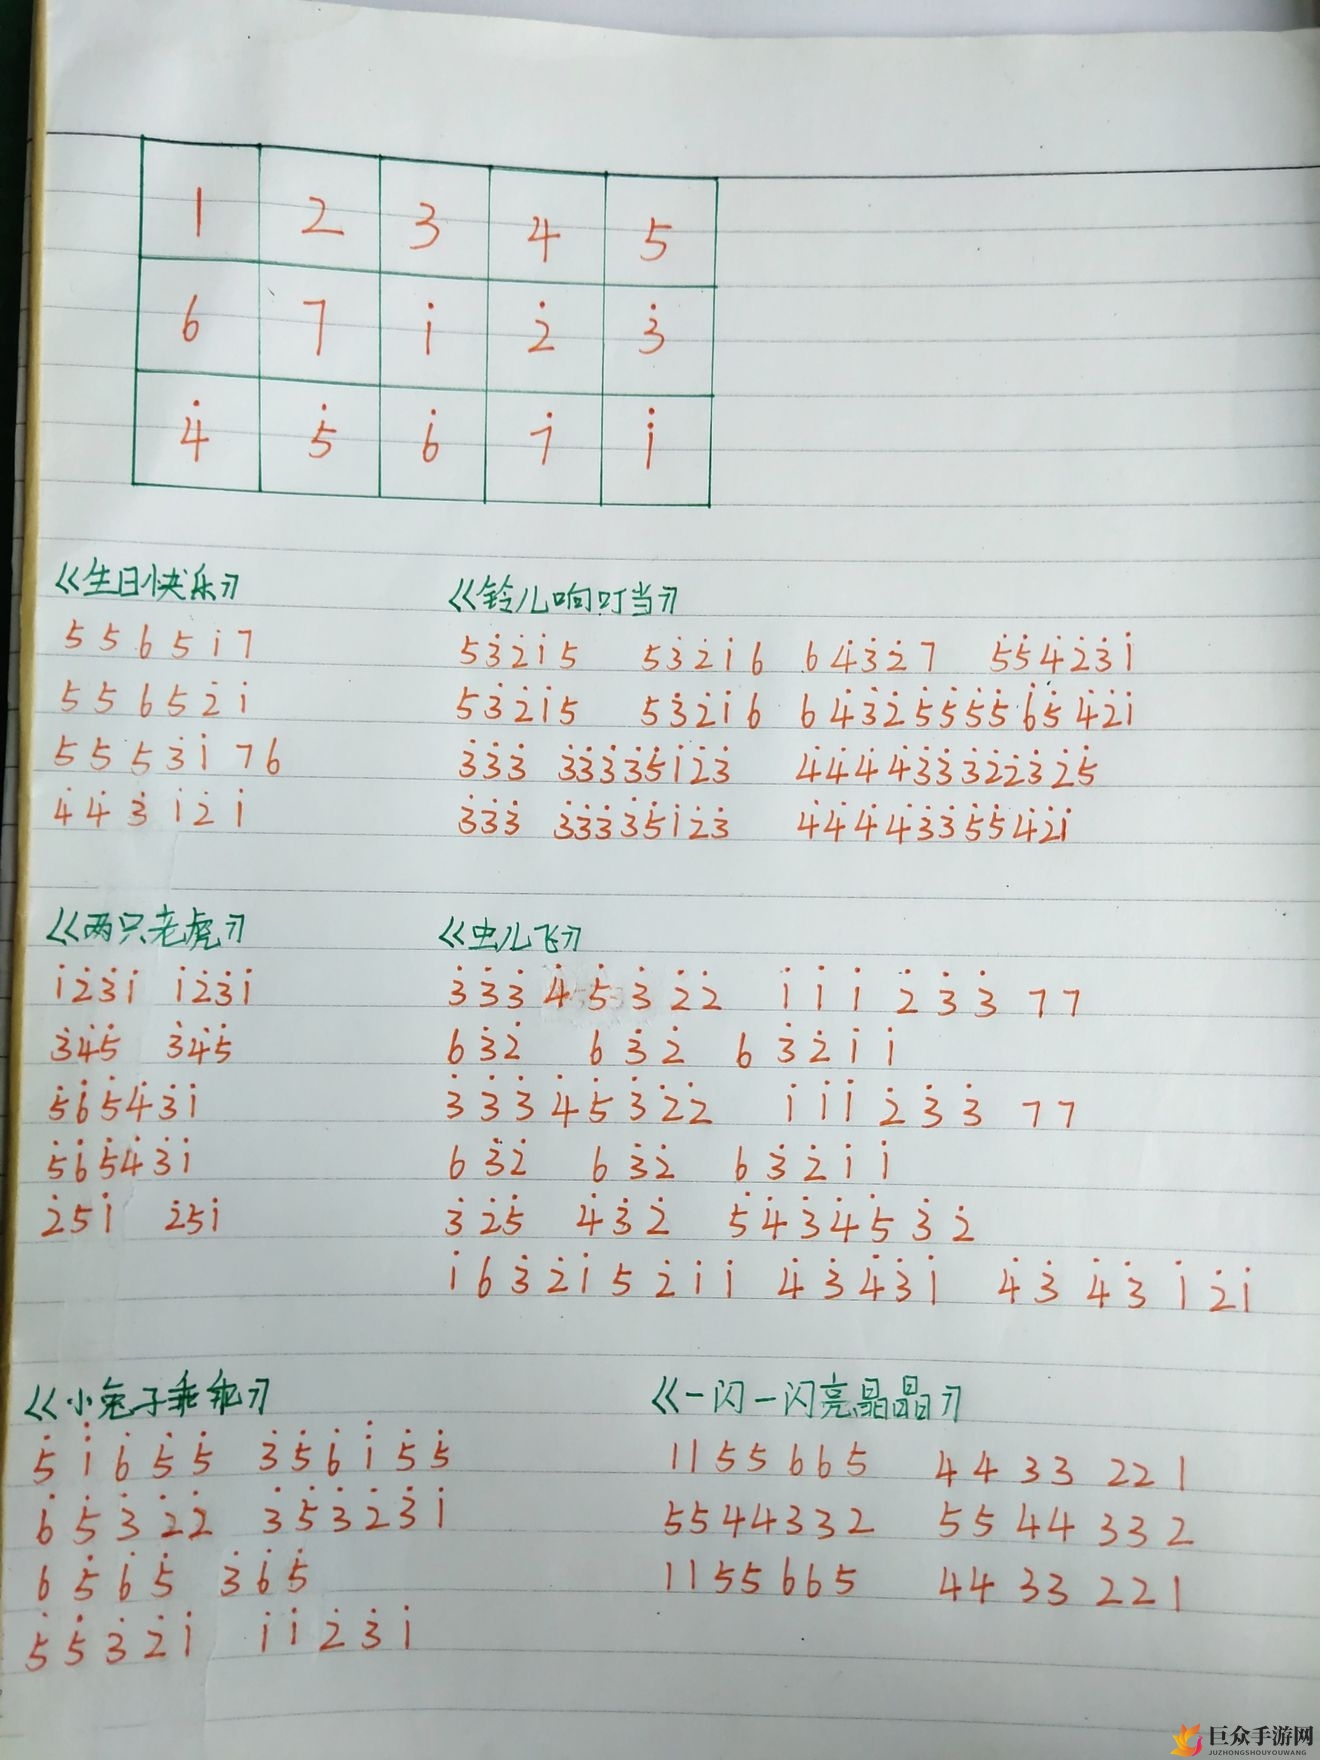 1 2 3 4 5
6 7 i 2̇ 3̇
4̇ 5̇ 6̇ 7̇ 1̈
《生日快乐》
5 5 6 5 i 7
5 5 6 5 2̇ i
5 5 5̇ 3̇ i 7 6
4̇ 4̇ 3̇ i 2̇ i
《铃儿响叮当》
5 3̇ 2̇ i 5 5 3̇ 2̇ i 6 6 4̇ 3̇ 2̇ 7 5̇ 5̇ 4̇ 2̇ 3̇ i
5 3̇ 2̇ i 5 5 3̇ 2̇ i 6 6 4̇ 3̇ 2̇ 5̇ 5̇ 5̇ 5̇ 6̇ 5̇ 4̇ 2̇ i
3̇ 3̇ 3̇ 3̇ 3̇ 3̇ 3̇ 5̇ i 2̇ 3̇ 4̇ 4̇ 4̇ 4̇ 3̇ 3̇ 3̇ 2̇ 2̇ 3̇ 2̇ 5̇
3̇ 3̇ 3̇ 3̇ 3̇ 3̇ 3̇ 5̇ i 2̇ 3̇ 4̇ 4̇ 4̇ 4̇ 3̇ 3̇ 5̇ 5̇ 4̇ 2̇ i
《两只老虎》
i 2̇ 3̇ i i 2̇ 3̇ i
3̇ 4̇ 5̇ 3̇ 4̇ 5̇
5̇ 6̇ 5̇ 4̇ 3̇ i
5̇ 6̇ 5̇ 4̇ 3̇ i
2̇ 5 i 2̇ 5 i
《虫儿飞》
3̇ 3̇ 3̇ 4̇ 5̇ 3̇ 2̇ 2̇ i i i 2̇ 3̇ 3̇ 7 7
6 3̇ 2̇ 6 3̇ 2̇ 6 3̇ 2̇ i i
3̇ 3̇ 3̇ 4̇ 5̇ 3̇ 2̇ 2̇ i i i 2̇ 3̇ 3̇ 7 7
6 3̇ 2̇ 6 3̇ 2̇ 6 3̇ 2̇ i i
3̇ 2̇ 5̇ 4̇ 3̇ 2̇ 5̇ 4̇ 3̇ 4̇ 5̇ 3̇ 2̇
i 6 3̇ 2̇ i 5 2̇ i i 4̇ 3̇ 4̇ 3̇ i 4̇ 3̇ 4̇ 3̇ i 2̇ i
《小兔子乖乖》
5̇ 1̈ 6̇ 5̇ 5̇ 3̇ 5̇ 6̇ i 5̇ 5̇
6̇ 5̇ 3̇ 2̇ 2̇ 3̇ 5̇ 3̇ 2̇ 3̇ i
6 5̇ 6̇ 5̇ 3̇ 6̇ 5̇
5̇ 5̇ 3̇ 2̇ i i i 2̇ 3̇ i
《一闪一闪亮晶晶》
1 1 5 5 6 6 5 4 4 3 3 2 2 1
5 5 4 4 3 3 2 5 5 4 4 3 3 2
1 1 5 5 6 6 5 4 4 3 3 2 2 1
巨众手游网
JUZHONGSHOUYOUWANG